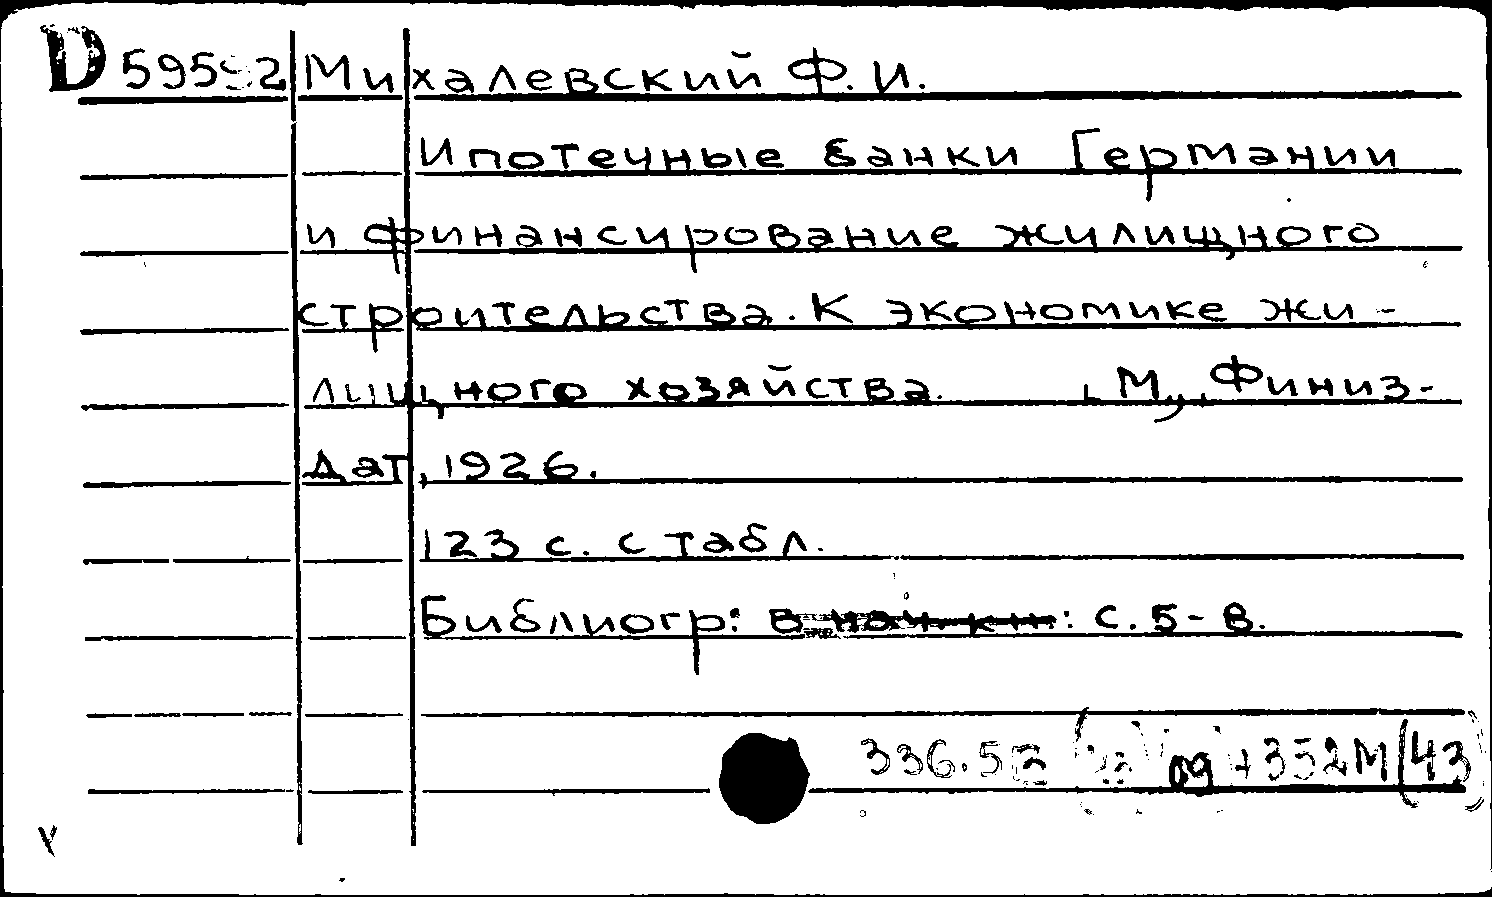 D 59592 Михалевский Ф. И.
Ипотечные банки Германии
и финансирование жилищного
строительства. К экономике жи-
лищного хозяйства. , М., Финиз-
дат, 1926.
123 с. с табл.
Библиогр: в нач. кн.: с. 5-8.
336.5 09 +352М(43)